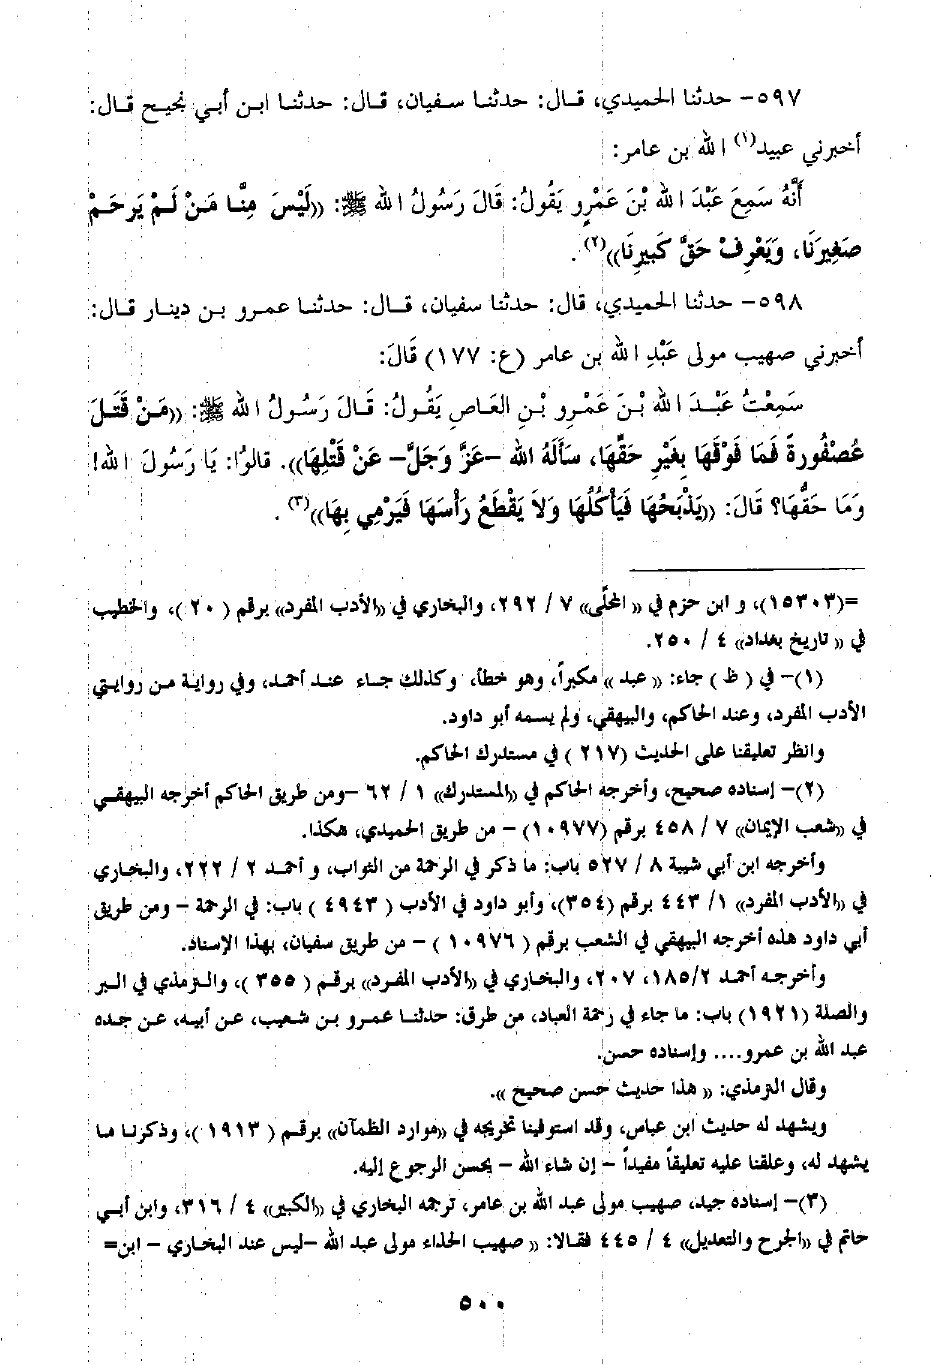 ٥٩٧- حدثنا الحميدي، قال: حدثنا سفيان، قال: حدثنا ابن أبي نجيح قال:
أخبرني عبيد(١) الله بن عامر:
أَنَّهُ سَمِعَ عَبْدَ الله بْنَ عَمْرٍو يَقُولُ: قَالَ رَسُولُ الله ﷺ: ((لَيْسَ مِنَّا مَنْ لَمْ يَرحَمْ
صَغِيرَنَا، وَيَعْرِفْ حَقَّ كَبِيرِنَا))(٢).
٥٩٨- حدثنا الحميدي، قال: حدثنا سفيان، قال: حدثنا عمرو بن دينار قال:
أخبرني صهيب مولى عَبْدِ الله بن عامر (ع: ١٧٧) قَالَ:
سَمِعْتُ عَبْدَ الله بْنَ عَمْرِو بْنِ العَاصِ يَقُولُ: قَالَ رَسُولُ الله ﷺ: ((مَنْ قَتَلَ
عُصْفُورةً فَمَا فَوْقَهَا بِغَيْرِ حَقِّهَا، سأَلَهُ الله -عَزَّ وَجَلَّ- عَنْ قَتْلِهَا)). قالوُا: يَا رَسُولَ الله!
وَمَا حَقُّهَا؟ قَالَ: ((يَذْبَحُهَا فَيَأْكُلُهَا وَلاَ يَقْطَعُ رَأْسَهَا فَيَرْمِي بِهَا))(٣).
=(١٥٣٠٣)، و ابن حزم في (( المحلَّى)) ٧ / ٢٩٢، والبخاري في ((الأدب المفرد)) برقم ( ٢٠ )، والخطيب
في (( تاريخ بغداد)) ٤ / ٢٥٠.
(١)- في ( ظ ) جاء: (( عبد )) مكبراً، وهو خطأ، وكذلك جاء عند أحمد، وفي رواية من روايتي
الأدب المفرد، وعند الحاكم، والبيهقي، ولم يسمه أبو داود.
وانظر تعليقنا على الحديث (٢١٧ ) في مستدرك الحاكم.
(٢)- إسناده صحيح، وأخرجه الحاكم في ((المستدرك)) ١ / ٦٢ -ومن طريق الحاكم أخرجه البيهقي
في ((شعب الإيمان)) ٧ / ٤٥٨ برقم (١٠٩٧٧) - من طريق الحميدي، هكذا.
وأخرجه ابن أبي شيبة ٨ / ٥٢٧ باب: ما ذكر في الرحمة من الثواب، و أحمد ٢ / ٢٢٢، والبخاري
في ((الأدب المفرد)) ١/ ٤٤٣ برقم (٣٥٤)، وأبو داود في الأدب ( ٤٩٤٣ ) باب: في الرحمة - ومن طريق
أبي داود هذه أخرجه البيهقي في الشعب برقم ( ١٠٩٧٦ ) - من طريق سفيان، بهذا الإسناد.
وأخرجه أحمد ١٨٥/٢، ٢٠٧، والبخاري في ((الأدب المفرد)) برقم ( ٣٥٥ )، والترمذي في البر
والصلة (١٩٢١) باب: ما جاء في رحمة العباد، من طرق: حدثنا عمرو بن شعيب، عن أبيه، عن جده
عبد الله بن عمرو.... وإسناده حسن.
وقال الترمذي: (( هذا حديث حسن صحيح )).
ويشهد له حديث ابن عباس، وقد استوفينا تخريجه في ((موارد الظمآن)) برقم ( ١٩١٣ )، وذكرنا ما
يشهد له، وعلقنا عليه تعليقاً مفيداً - إن شاء الله - يحسن الرجوع إليه.
(٣)- إسناده جيد، صهيب مولى عبد الله بن عامر، ترجمه البخاري في ((الكبير)) ٤ / ٣١٦، وابن أبي
حاتم في ((الجرح والتعديل)) ٤ / ٤٤٥ فقالا: (( صهيب الحذاء مولى عبد الله -ليس عند البخاري - ابن=
٥٠٠